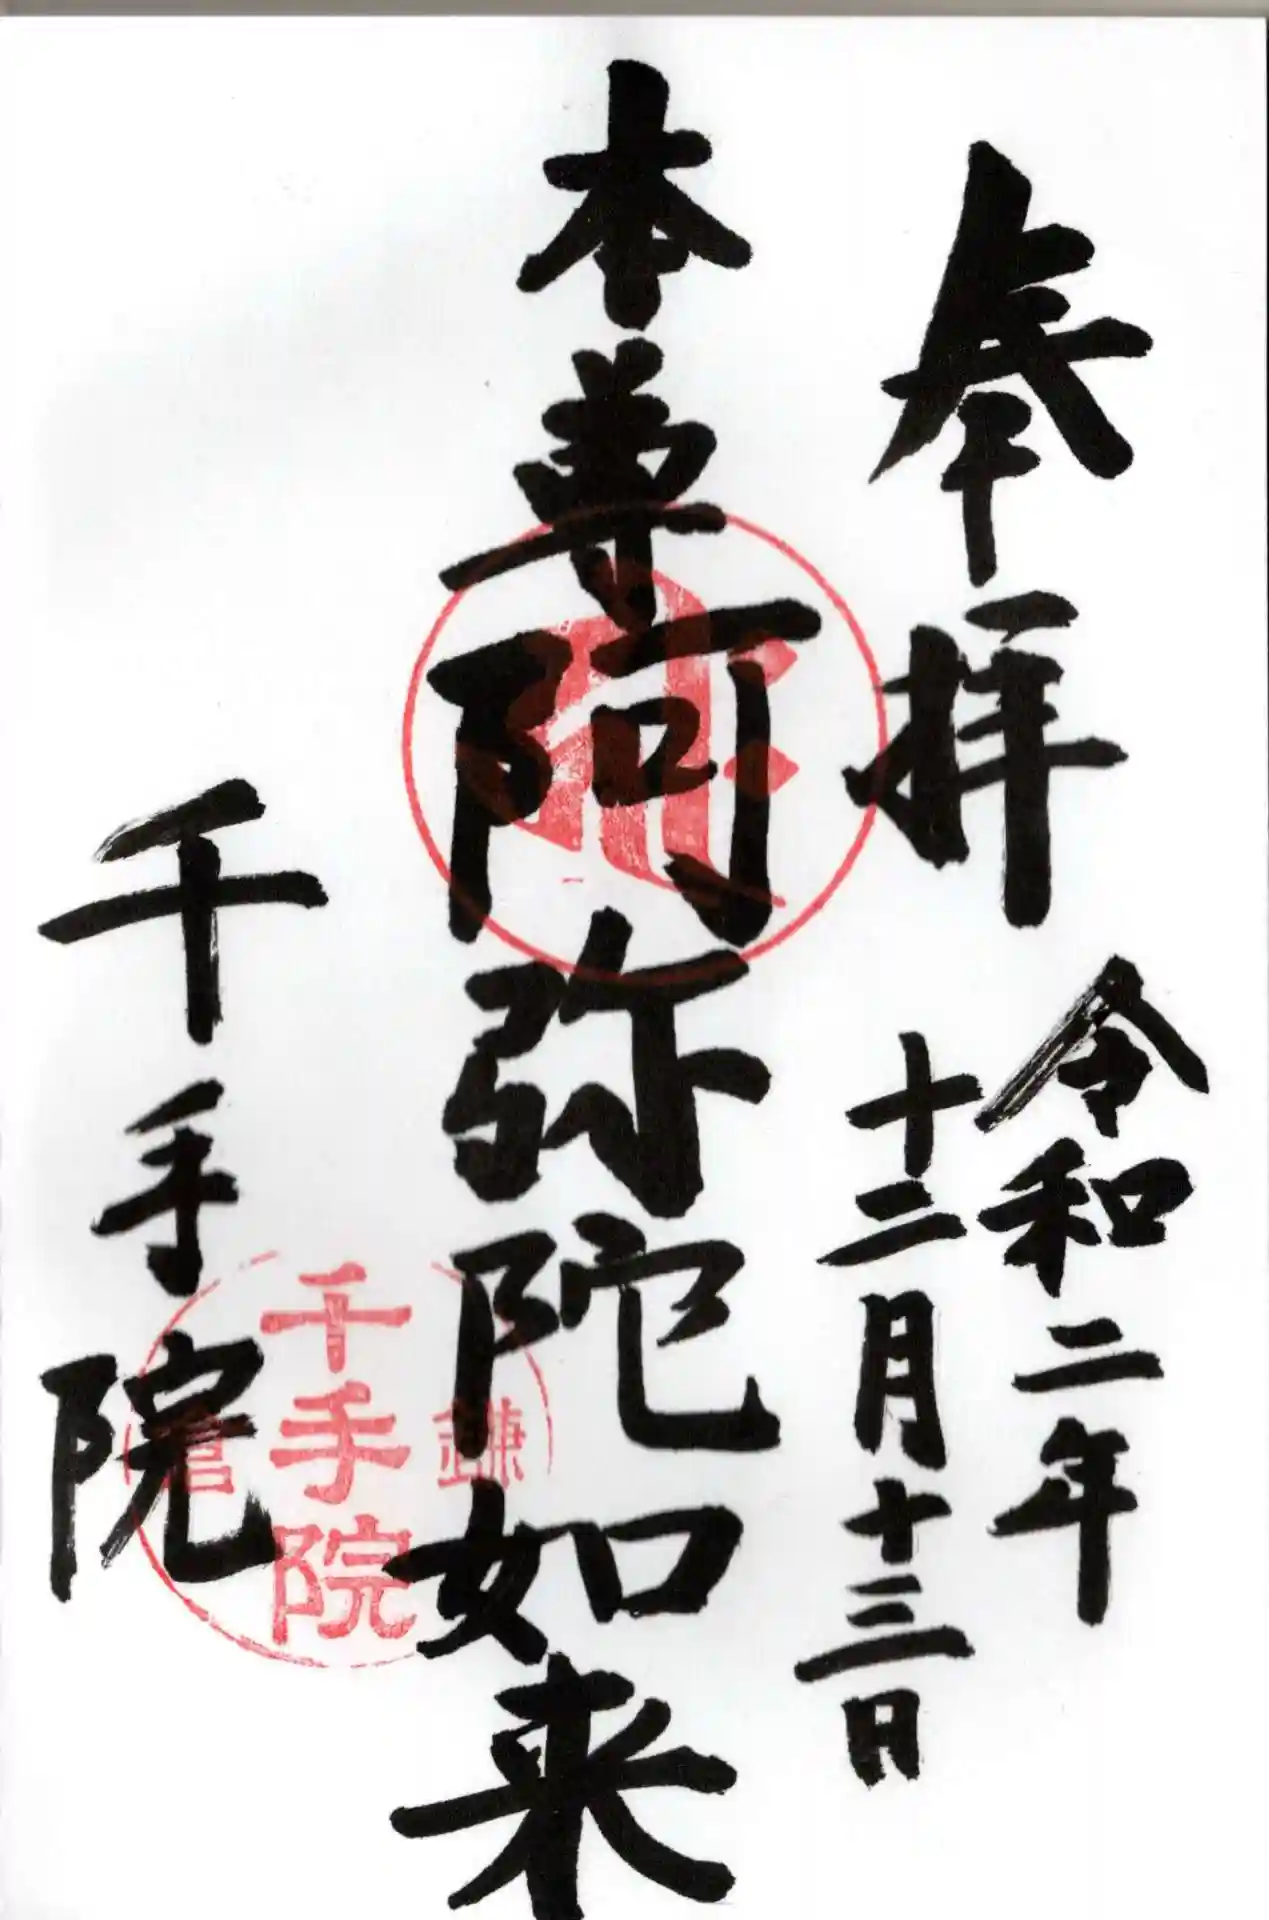 奉拝
令和二年
十二月十三日
本尊阿弥陀如来
千手院
鎌
千手院
倉